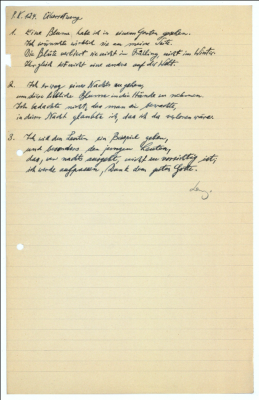 Übersetzung
1. Eine Blume, habe ich in einem Garten gesehen.
Ich wünschte wirklich sie an meine Seite.
Die Blüte verliert sie nicht im Frühling, nicht im Winter.
Ihr gleich ist nicht eine andre auf der Welt.
2. Ich erwog eine Nachts zu gehen,
um diese liebliche Blume in die Hände zu nehmen.
Ich bedachte nicht, dass man sie bewachte,
in dieser Nacht glaubte ich, dass ich verloren wäre.
3. Ich will den Leuten ein Beispiel geben,
und besonders den jungen Leuten,
das, wer nachts ausgeht, nicht vorsichtig ist,
ich werde aufpassen, Dank dem guten Gotte.